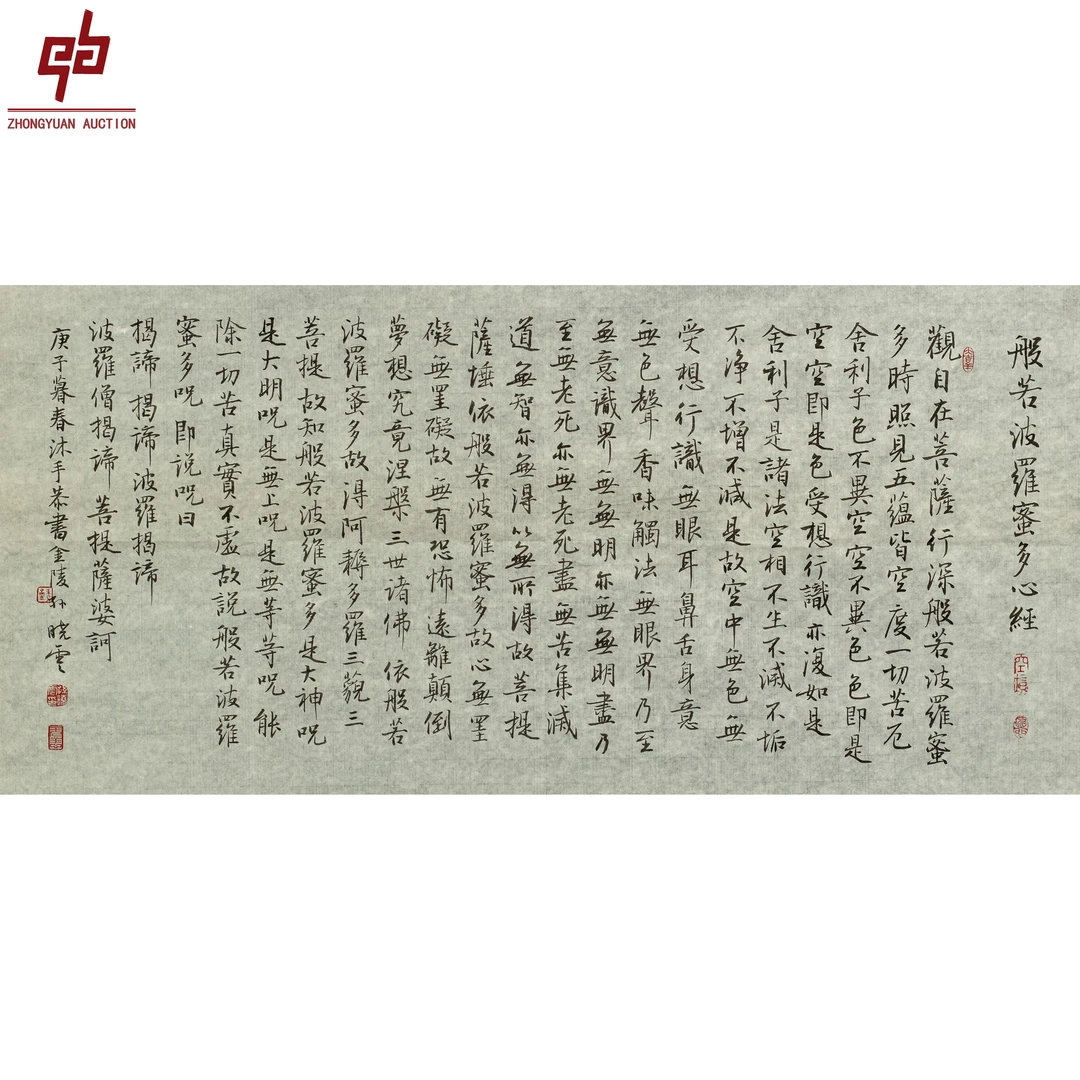 ZHONGYUAN AUCTION
般若波羅蜜多心經
觀自在菩薩行深般若波羅蜜
多時照見五蘊皆空度一切苦厄
舍利子色不異空空不異色色即是
空空即是色受想行識亦復如是
舍利子是諸法空相不生不滅不垢
不淨不增不減是故空中無色無
受想行識無眼耳鼻舌身意
無色聲香味觸法無眼界乃至
無意識界無無明亦無無明盡乃
至無老死亦無老死盡無苦集滅
道無智亦無得以無所得故菩提
薩埵依般若波羅蜜多故心無罣
礙無罣礙故無有恐怖遠離顛倒
夢想究竟涅槃三世諸佛依般若
波羅蜜多故得阿耨多羅三藐三
菩提故知般若波羅蜜多是大神咒
是大明咒是無上咒是無等等咒能
除一切苦真實不虛故說般若波羅
蜜多咒即說咒曰
揭諦揭諦波羅揭諦
波羅僧揭諦菩提薩婆訶
庚子暮春沐手恭書金陵孙曉雲